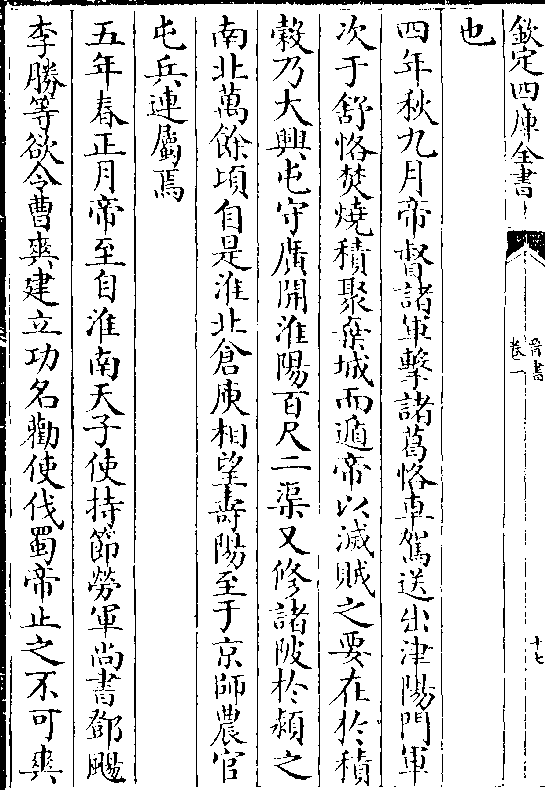 欽定四庫全書
晉書
卷一
十七
也
四年秋九月帝督諸軍擊諸葛恪車駕送出津陽門軍
次于舒恪焚燒積聚棄城而遁帝以滅賊之要在於積
穀乃大興屯守廣開淮陽百尺二渠又修諸陂於潁之
南北萬餘頃自是淮北倉庾相望壽陽至于京師農官
屯兵連屬焉
五年春正月帝至自淮南天子使持節勞軍尚書鄧颺
李勝等欲令曹爽建立功名勸使伐蜀帝止之不可爽